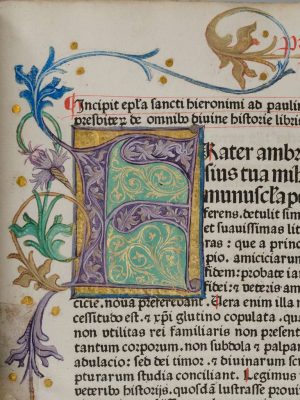 Incipit epl'a sancti hieronimi ad pauli
presbiteꝝ de omnibꝰ diuine historie libri
FRater ambr
sius tua mih
munuscl'a p
ferens. detulit sim
et suauissimas lit
ras: que a princi
pio. amiciciarum
fidem: probate ia
fidei: ⁊ veteris am
cicie. noua preferebant. Uera enim illa
cessitudo est. ⁊ xp̄i glutino copulata. qua
non vtilitas rei familiaris non presen
tantum corporum. non subdola ⁊ palpa
adulacio: sed dei timor. ⁊ diuinarum scri
pturarum studia conciliant. Legimus
veteribꝰ historijs. quosdā lustrasse proui